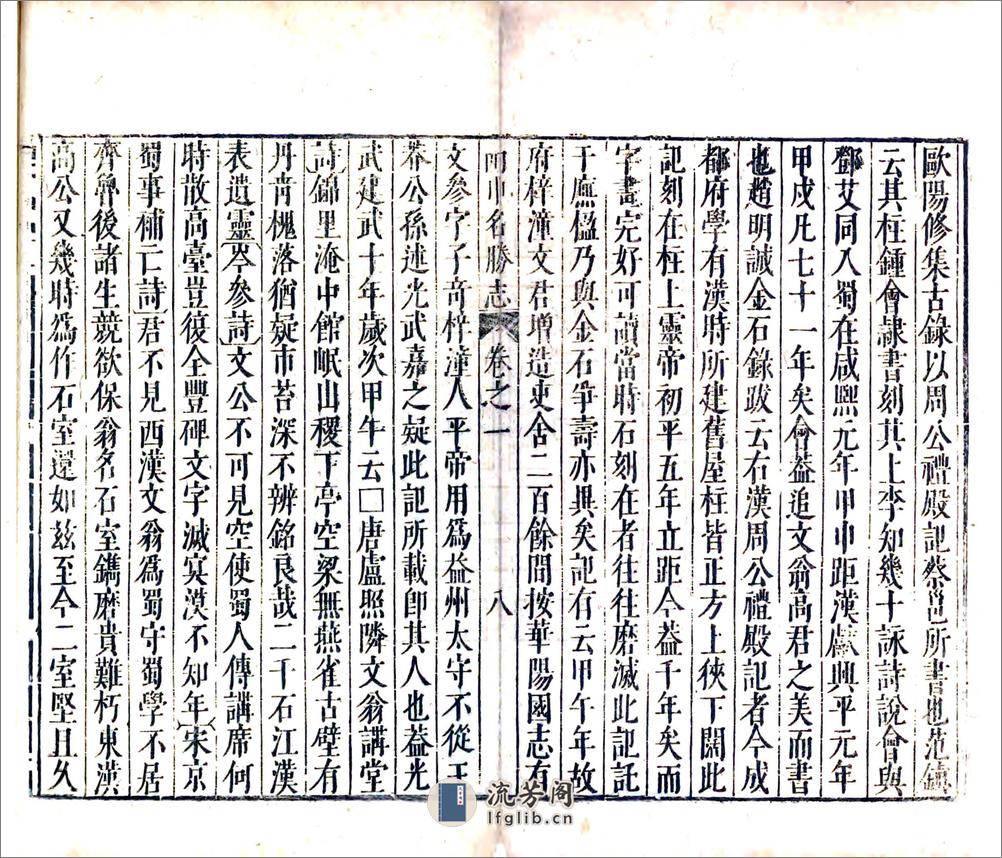 歐陽修集古錄以周公禮殿記蔡邕所書也范鎮
云其柱鍾會隷書刻其上李知幾十詠詩說會與
鄧艾同入蜀在咸熙元年甲申距漢獻興平元年
甲戌凡七十一年矣會葢追文翁高君之美而書
也趙明誠金石錄跋云右漢周公禮殿記者今成
都府學有漢時所建舊屋柱皆正方上狹下闊此
記刻在柱上靈帝初平五年立距今葢千年矣而
字畫完好可讀當時石刻在者往往磨滅此記託
于廡楹乃與金石爭壽亦異矣記有云甲午年故
府梓潼文君增造吏舍二百餘間按華陽國志有
名勝志 卷之一 八
文參字子奇梓潼人平帝用爲益州太守不從王
莽公孫述光武嘉之疑此記所載卽其人也葢光
武建武十年歲次甲午云□唐盧照隣文翁講堂
詩錦里淹中館岷山稷下亭空梁無燕雀古壁有
丹靑槐落猶疑市苔深不辨銘良哉二千石江漢
表遺靈岑參詩文公不可見空使蜀人傳講席何
時散高臺豈復全豐碑文字滅冥漠不知年宋京
蜀事補亡詩君不見西漢文翁爲蜀守蜀學不居
齊魯後諸生競欲保翁名石室鐫磨貴難朽東漢
高公又幾時爲作石室還如茲至今二室堅且久
流芳阁
lfglib.cn